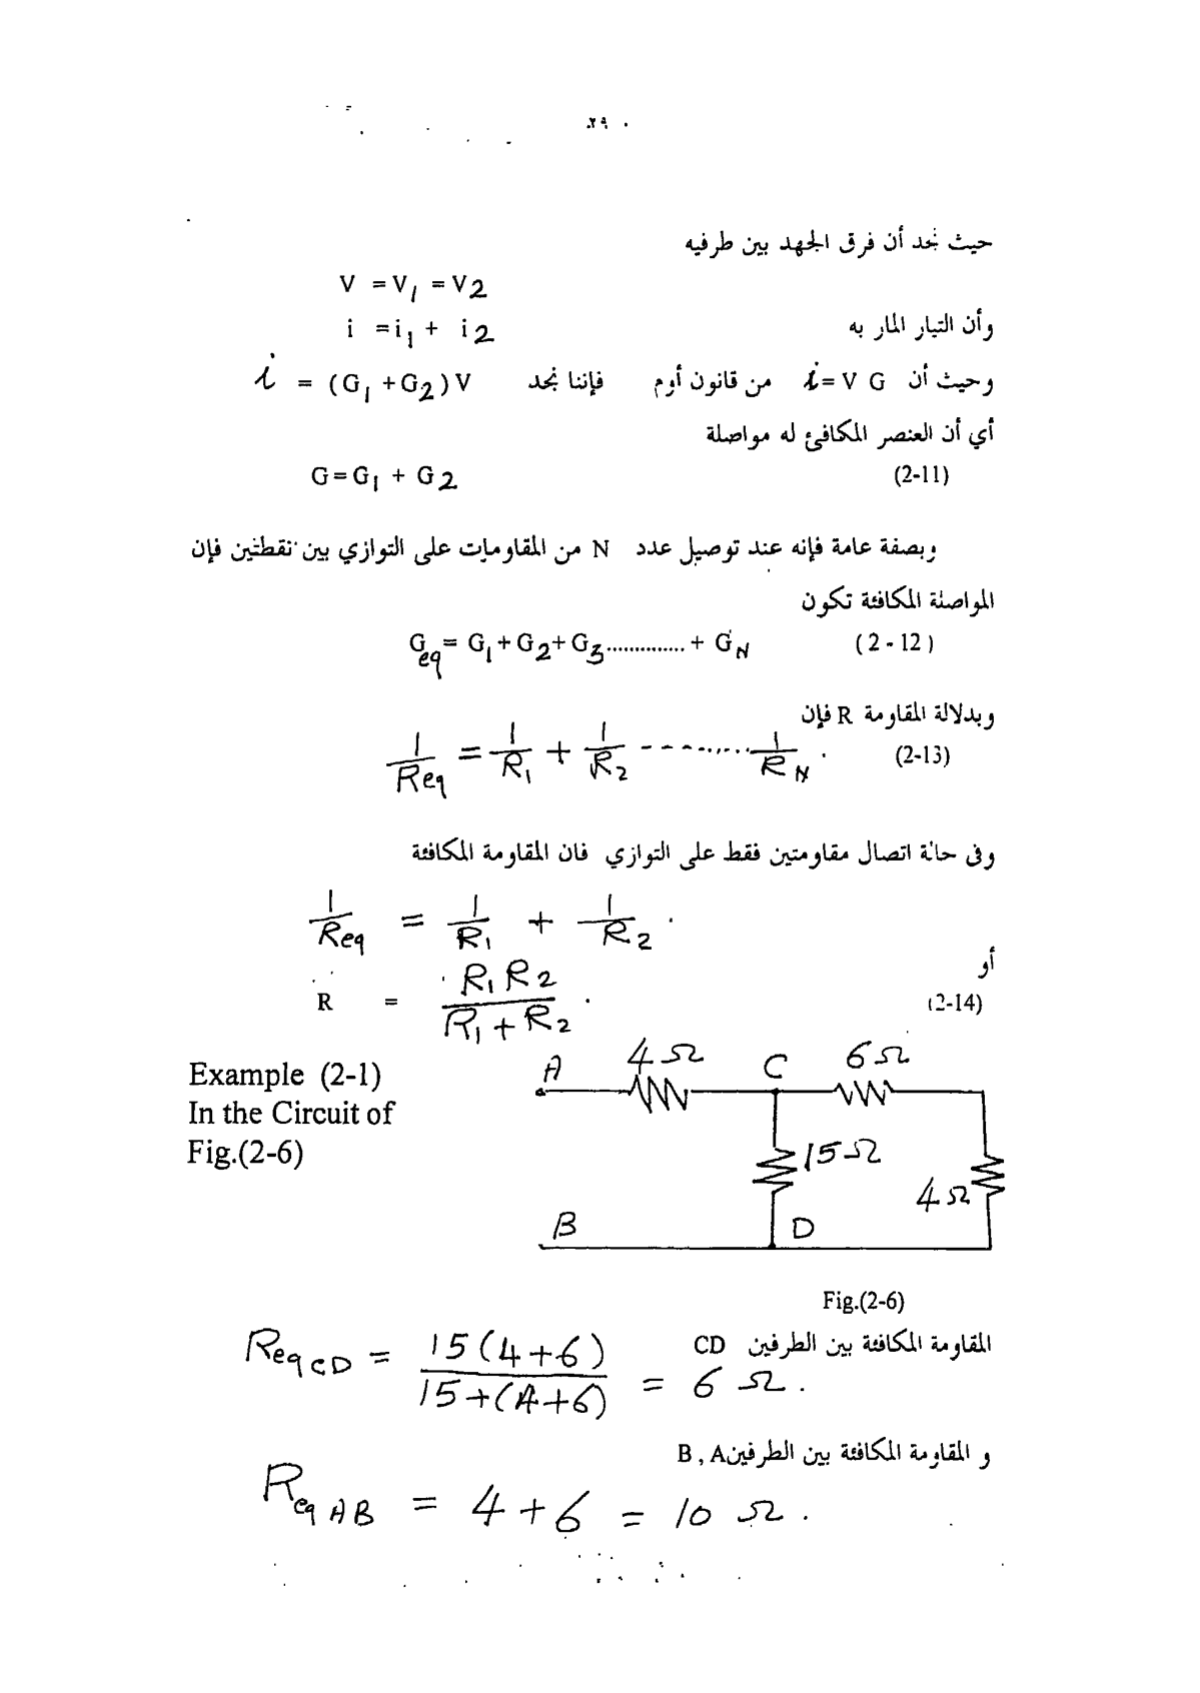 ٢٩
حيث نجد أن فرق الجهد بين طرفيه
V = V1 = V2
وأن التيار المار به i = i1 + i2
وحيث أن i = V G من قانون أوم فإننا نجد i = (G1 + G2) V
أي أن العنصر المكافئ له مواصلة
(2-11) G = G1 + G2
وبصفة عامة فإنه عند توصيل عدد N من المقاومات على التوازي بين نقطتين فإن
المواصلة المكافئة تكون
(2 - 12) Geq = G1 + G2 + G3 .............. + GN
وبدلالة المقاومة R فإن
(2-13) 1/Req = 1/R1 + 1/R2 ---------- 1/RN
وفى حالة اتصال مقاومتين فقط على التوازي فان المقاومة المكافئة
1/Req = 1/R1 + 1/R2
أو
(2-14) R = R1 R2 / R1 + R2
Example (2-1)
In the Circuit of
Fig.(2-6)
A 4Ω C 6Ω
15Ω
4Ω
B D
Fig.(2-6)
المقاومة المكافئة بين الطرفين CD
Req CD = 15(4+6) / 15+(4+6) = 6 Ω.
و المقاومة المكافئة بين الطرفين B , A
Req AB = 4 + 6 = 10 Ω.